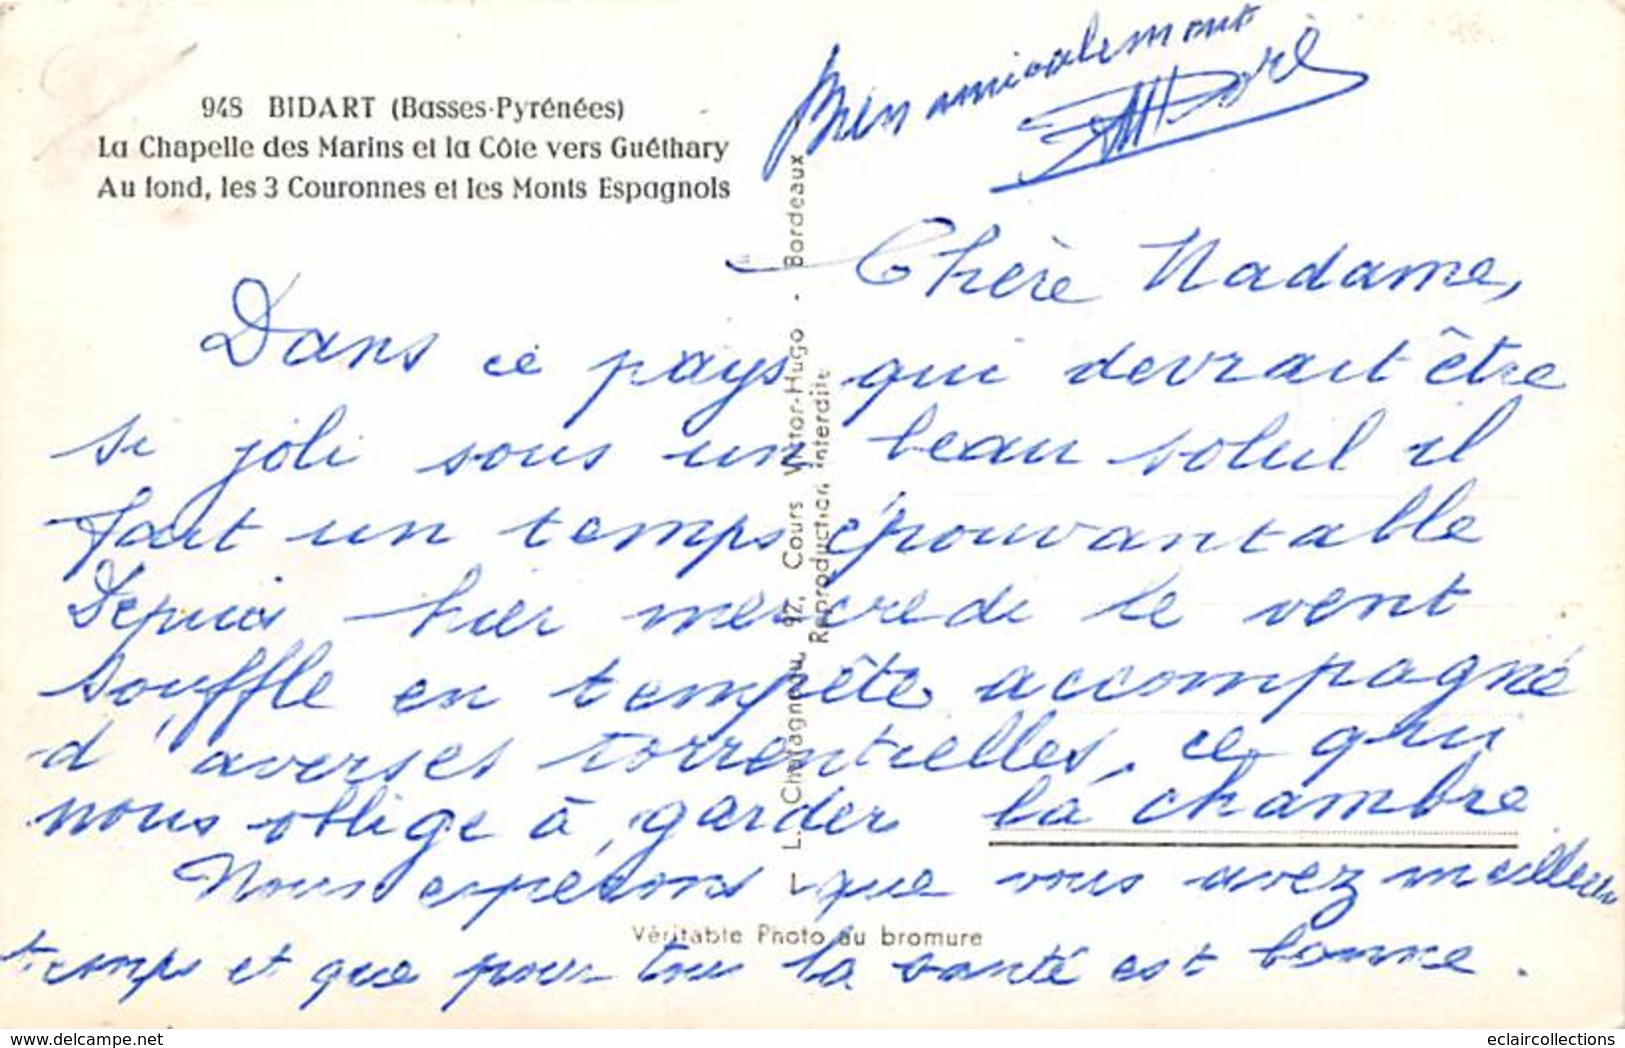 948 BIDART (Basses-Pyrénées)
La Chapelle des Marins et la Côte vers Guéthary
Au fond, les 3 Couronnes et les Monts Espagnols
Bien amicalement
Chère Madame,
Dans ce pays qui devrait être
si joli sous un beau soleil il
fait un temps épouvantable
Depuis hier mercredi le vent
souffle en tempête accompagné
d'averses torrentielles, ce qui
nous oblige à garder la chambre
Nous espérons que vous avez meilleur
temps et que pour tous la santé est bonne.
L. Chatagneau, 92, Cours Victor-Hugo - Bordeaux
Reproduction interdite
Véritable Photo au bromure
www.delcampe.net
eclaircollections